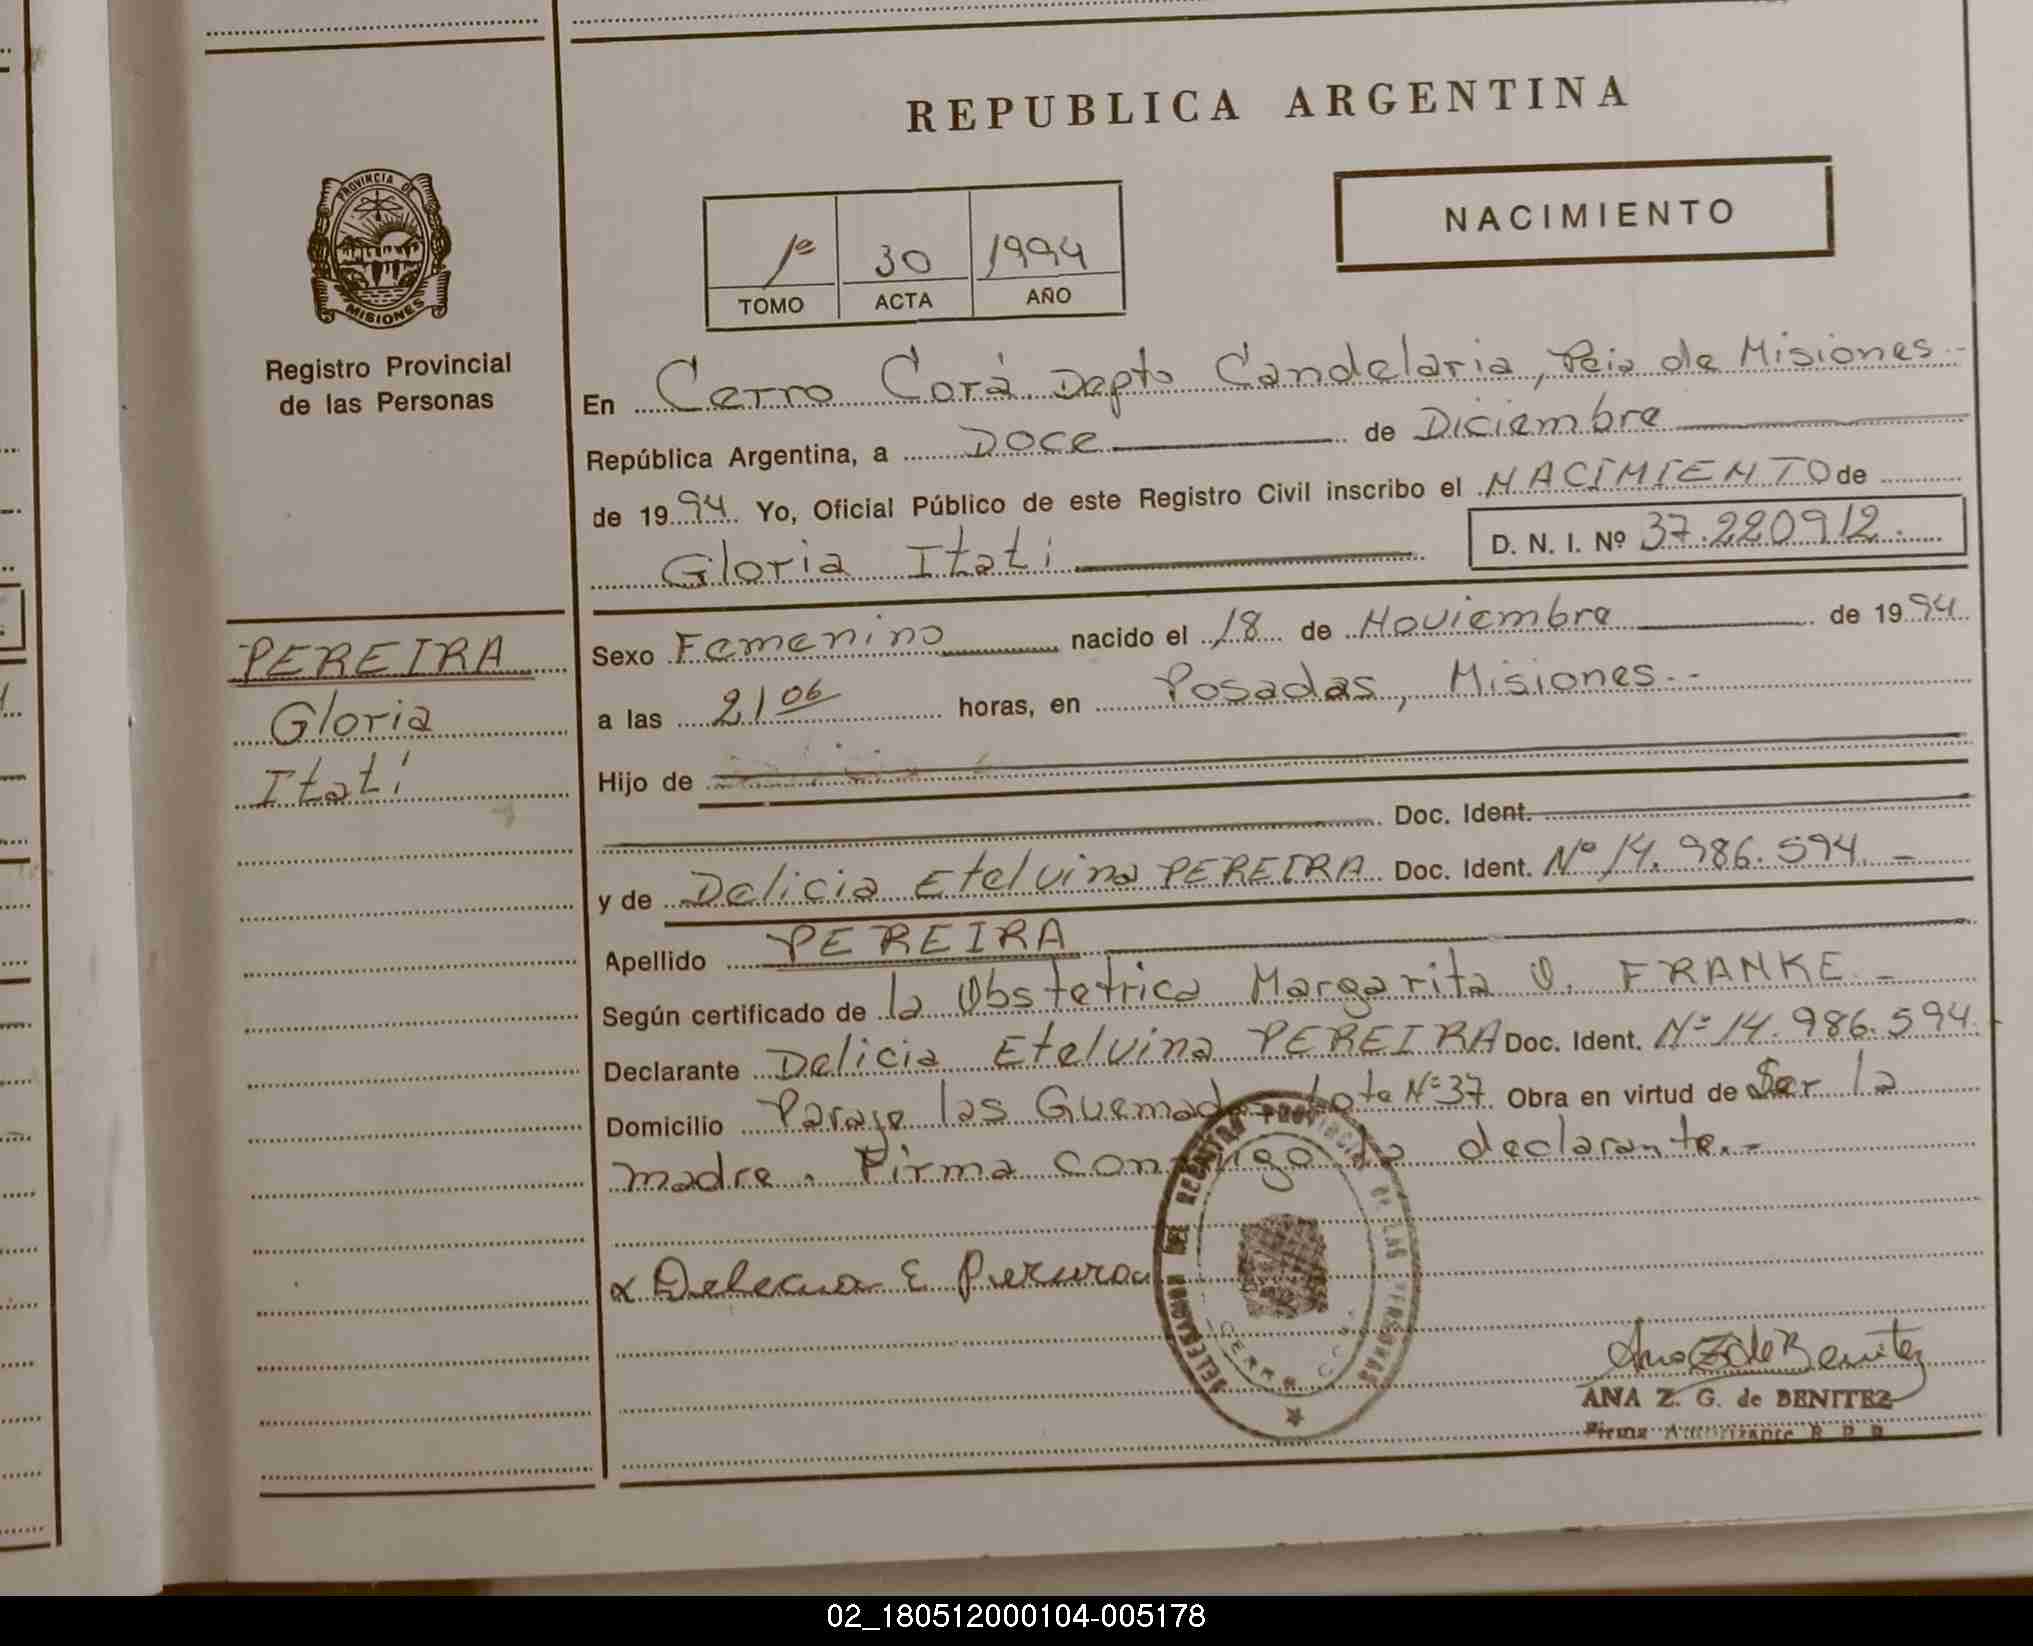 REPUBLICA ARGENTINA
NACIMIENTO
1º 30 1994
TOMO ACTA AÑO
PROVINCIA DE
MISIONES
Registro Provincial
de las Personas
En Cerro Corá Depto Candelaria, Pcia de Misiones.-
República Argentina, a Doce de Diciembre
de 1994 Yo, Oficial Público de este Registro Civil inscribo el NACIMIENTO de
Gloria Itatí D. N. I. Nº 37.220912.
PEREIRA
Gloria
Itatí
Sexo Femenino nacido el 18 de Noviembre de 1994
a las 21 06 horas, en Posadas, Misiones.-
Hijo de
Doc. Ident.
y de Delicia Etelvina PEREIRA Doc. Ident. Nº 14.986.594.-
Apellido PEREIRA
Según certificado de la Obstetrica Margarita O. FRANKE.-
Declarante Delicia Etelvina PEREIRA Doc. Ident. Nº 14.986.594
Domicilio Paraje las Quemadas Lote Nº 37 Obra en virtud de Ser la
madre. Firma conmigo la declarante.-
DELEGACION DEL REGISTRO PROVINCIAL DE LAS PERSONAS
CERRO CORA
x Delecia E Pereira
Ana Z de Benitez
ANA Z. G. de BENITEZ
Firma Autorizante R. P. P.
02_180512000104-005178